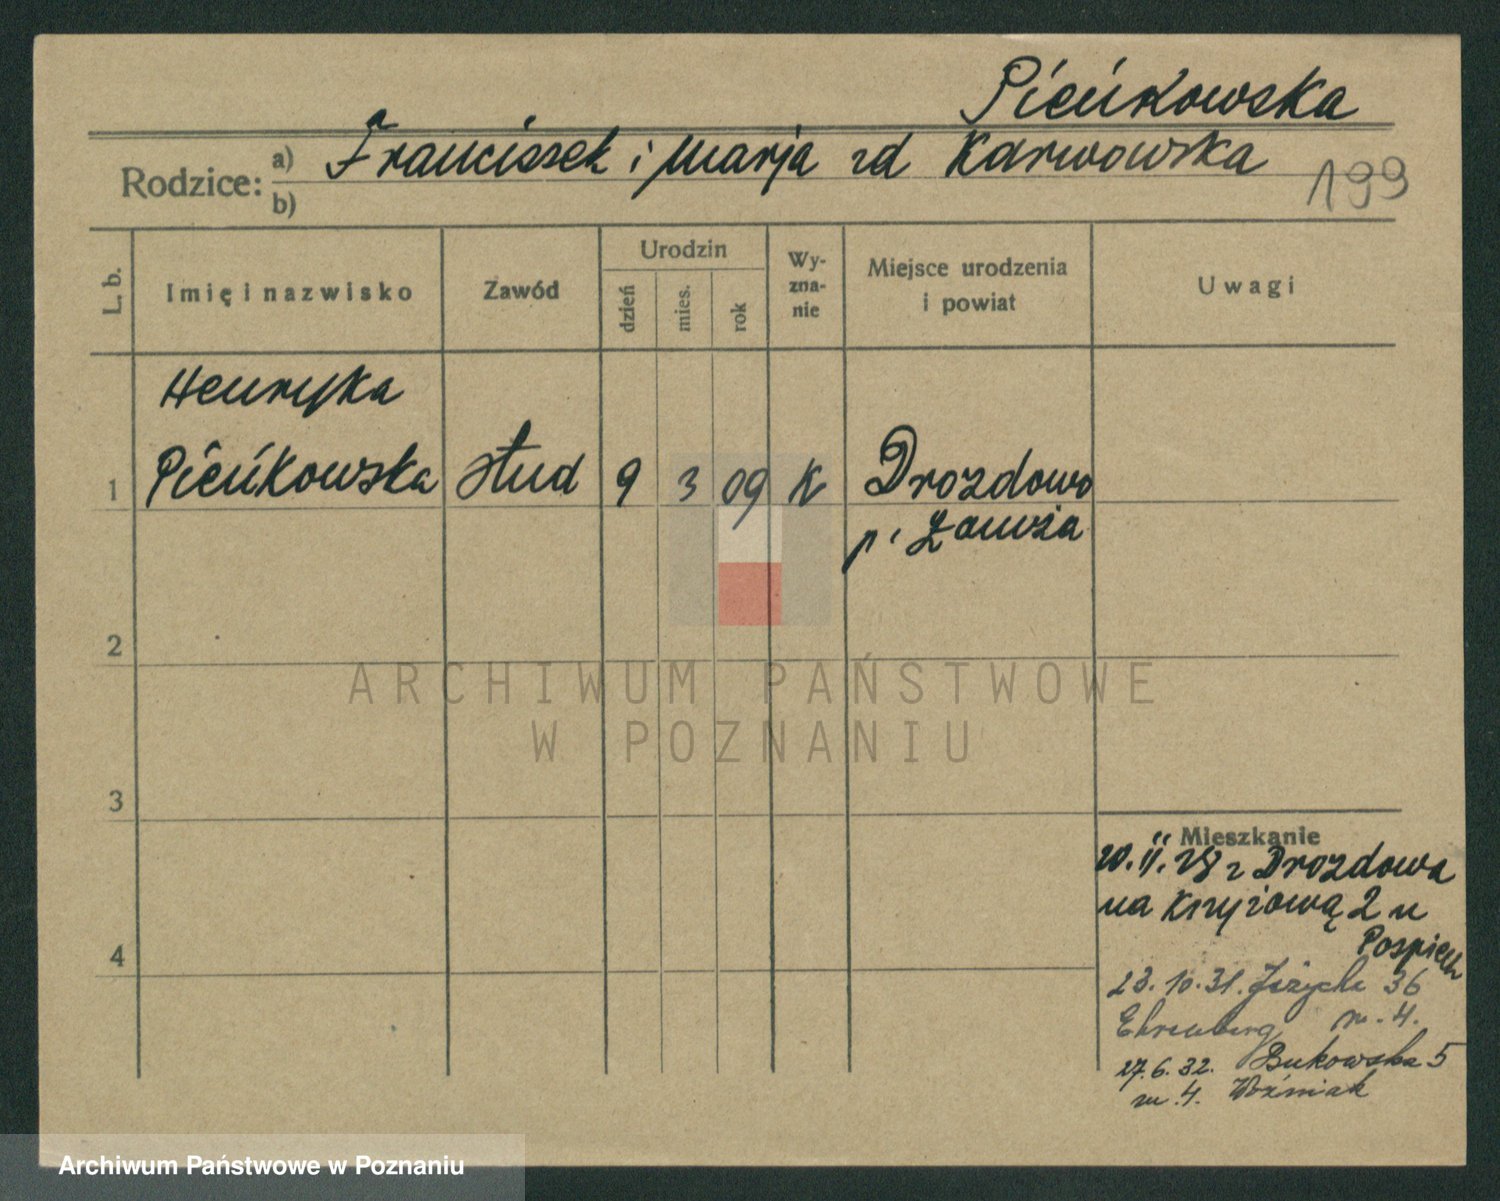 Pieńkowska
Rodzice: a) Franciszek i Marja zd Karwowska
b)
199
L. b.
Imię i nazwisko
Zawód
Urodzin
dzień
mies.
rok
Wy-
zna-
nie
Miejsce urodzenia
i powiat
Uwagi
Henryka
1 Pieńkowska stud 9 3 09 K Drozdowo
p. Łomża
2
ARCHIWUM PAŃSTWOWE
W POZNANIU
3
Mieszkanie
20.II.28 z Drozdowa
na Kryżową 2 u
4
Pospiech
23.10.31. 36
Ehrenberg m. 4.
27.6.32. Bukowska 5
m. 4. Woźniak
Archiwum Państwowe w Poznaniu